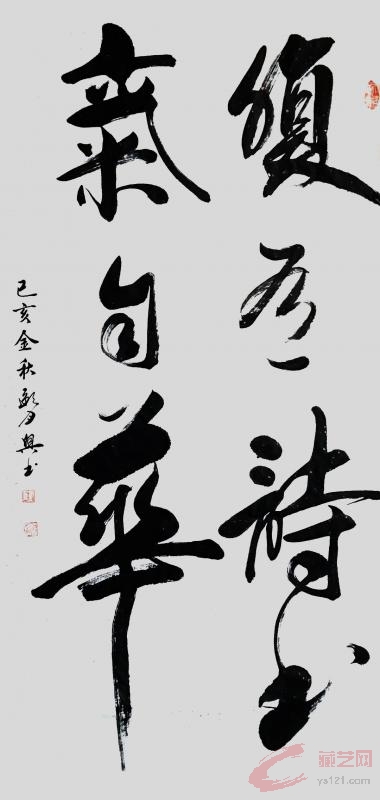 腹有詩书
氣自華
己亥金秋 興书
藏艺网
ys121.com